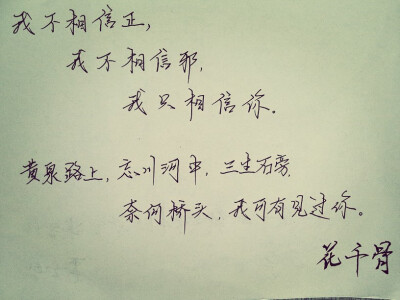 我不相信正，
我不相信邪，
我只相信你。
黄泉路上，忘川河中，三生石旁，
奈何桥头，我可有见过你。
花千骨